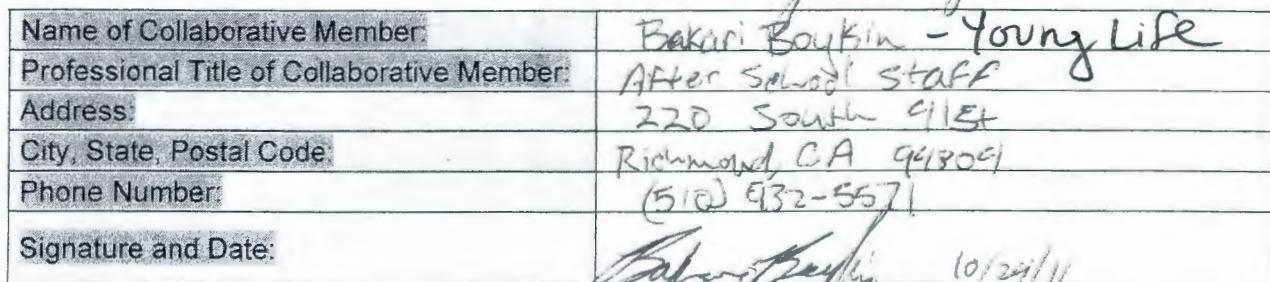 Name of Collaborative Member: Bakari Boykin - Young Life
Professional Title of Collaborative Member: After School Staff
Address: 220 South 41st
City, State, Postal Code: Richmond, CA 94804
Phone Number: (510) 932-5571
Signature and Date: Bakari Boykin 10/24/11